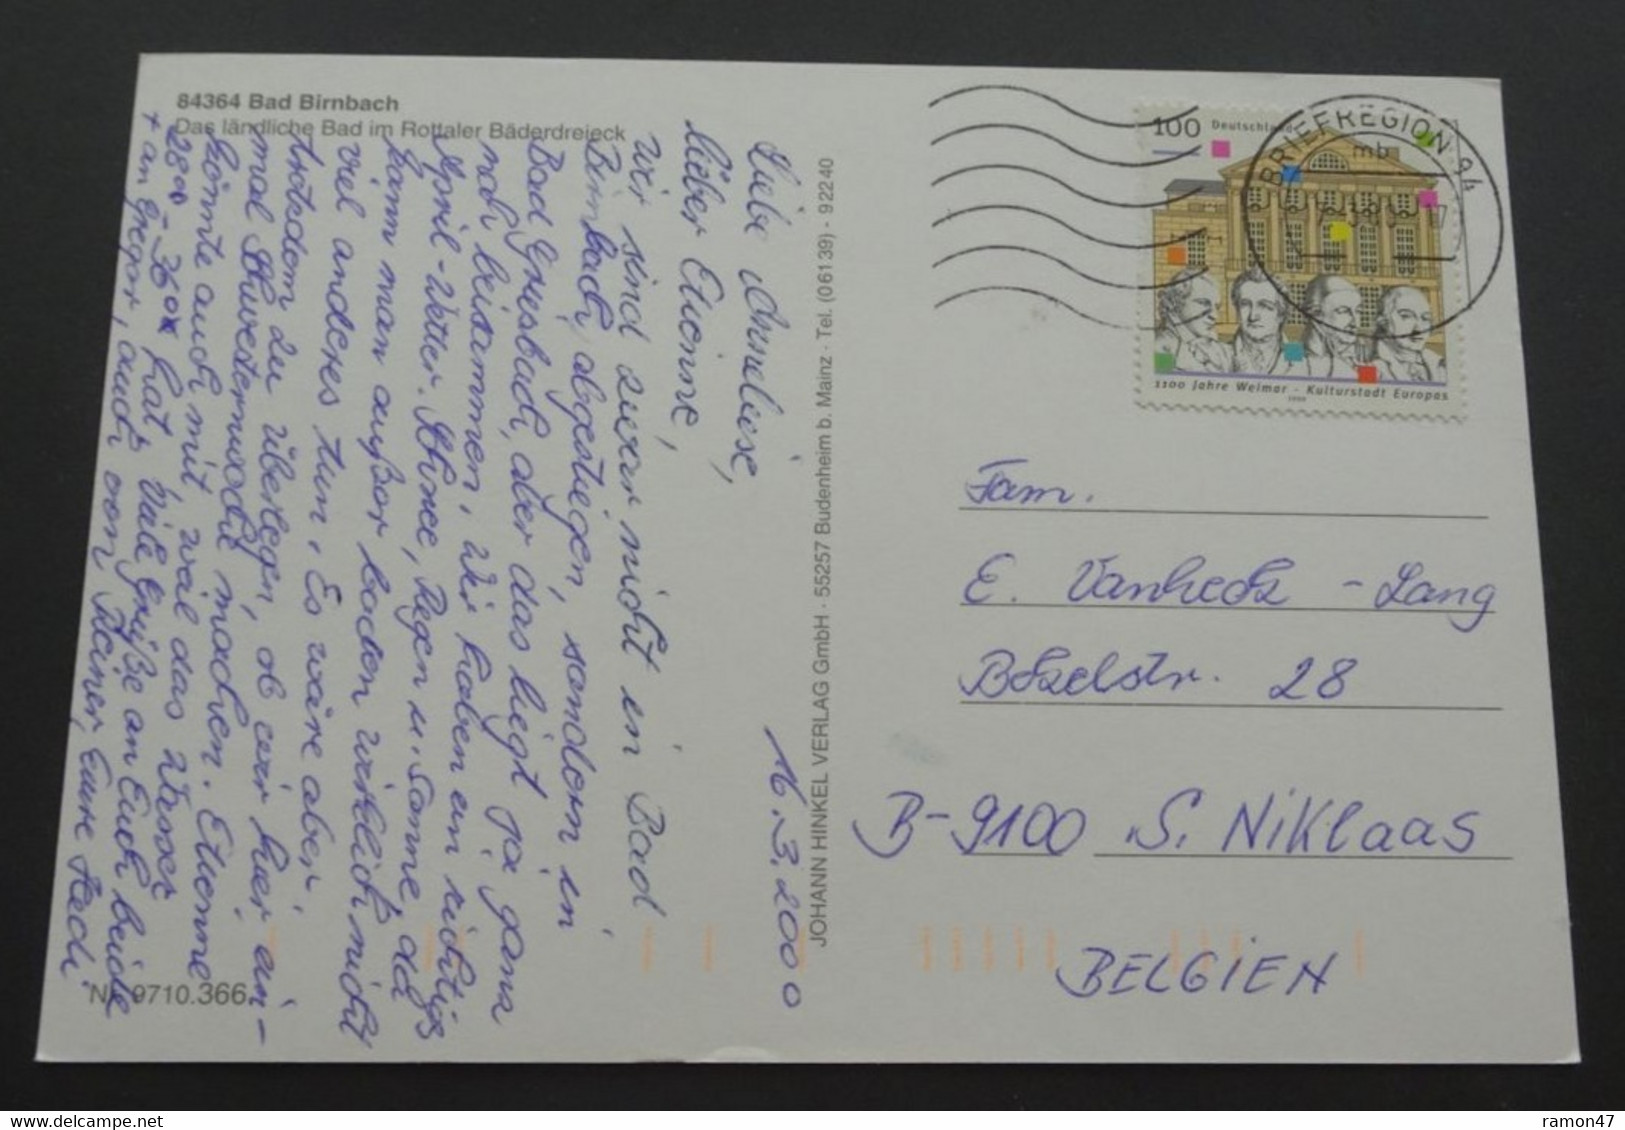 84364 Bad Birnbach
Das ländliche Bad im Rottaler Bäderdreieck
16.3.2000
Liebe Anneliese,
lieber Etienne,
wir sind zwar nicht in Bad
Birnbach abgestiegen, sondern in
Bad Griesbach, aber das liegt ja ganz
nah beisammen. Wir haben ein richtiges
April-Wetter. Schnee, Regen u. Sonne, da
kann man außer baden wirklich nicht
viel anderes tun. Es wäre aber
trotzdem zu überlegen, ob wir hier ein-
mal Schwesternwoche machen. Etienne
könnte auch mit, weil das Wasser
28°-36° hat. Viele Grüße an Euch beide
+ an Gregor, auch von Reiner, Eure Hedi.
Nr. 9710.366
JOHANN HINKEL VERLAG GmbH · 55257 Budenheim b. Mainz · Tel. (06139) - 92240
100 Deutschland
1100 Jahre Weimar - Kulturstadt Europas
1999
BRIEFREGION 94
mb
Fam.
E. Vanheck - Lang
Str. 28
B-9100 S. NIKLAAS
BELGIEN
ramon47